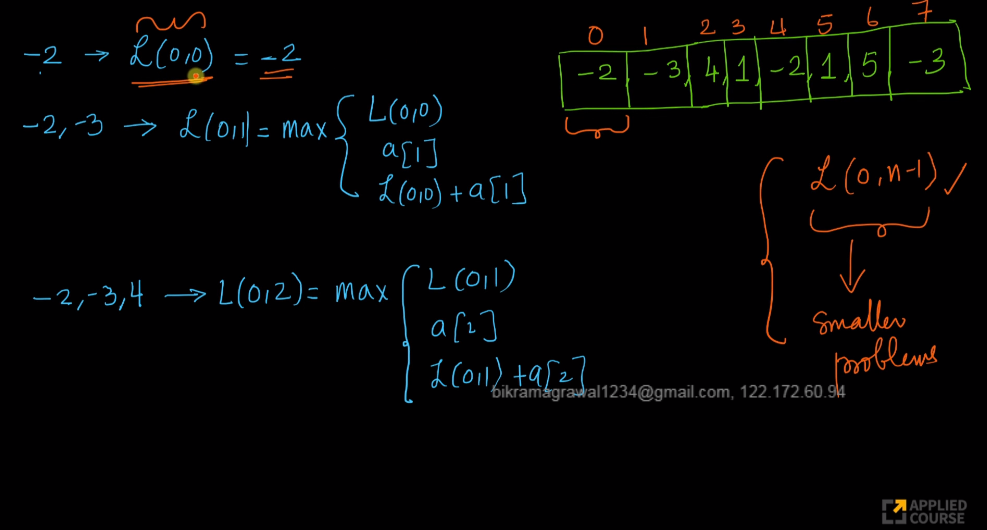 -2 → L(0,0) = -2
-2, -3 → L(0,1) = max {
L(0,0)
a[1]
L(0,0) + a[1]
-2, -3, 4 → L(0,2) = max {
L(0,1)
a[2]
L(0,1) + a[2]
0 1 2 3 4 5 6 7
-2, -3, 4, 1, -2, 1, 5, -3
L(0, n-1) ✓
↓
smaller
problems
bikramagrawal1234@gmail.com, 122.172.60.94
APPLIED
COURSE